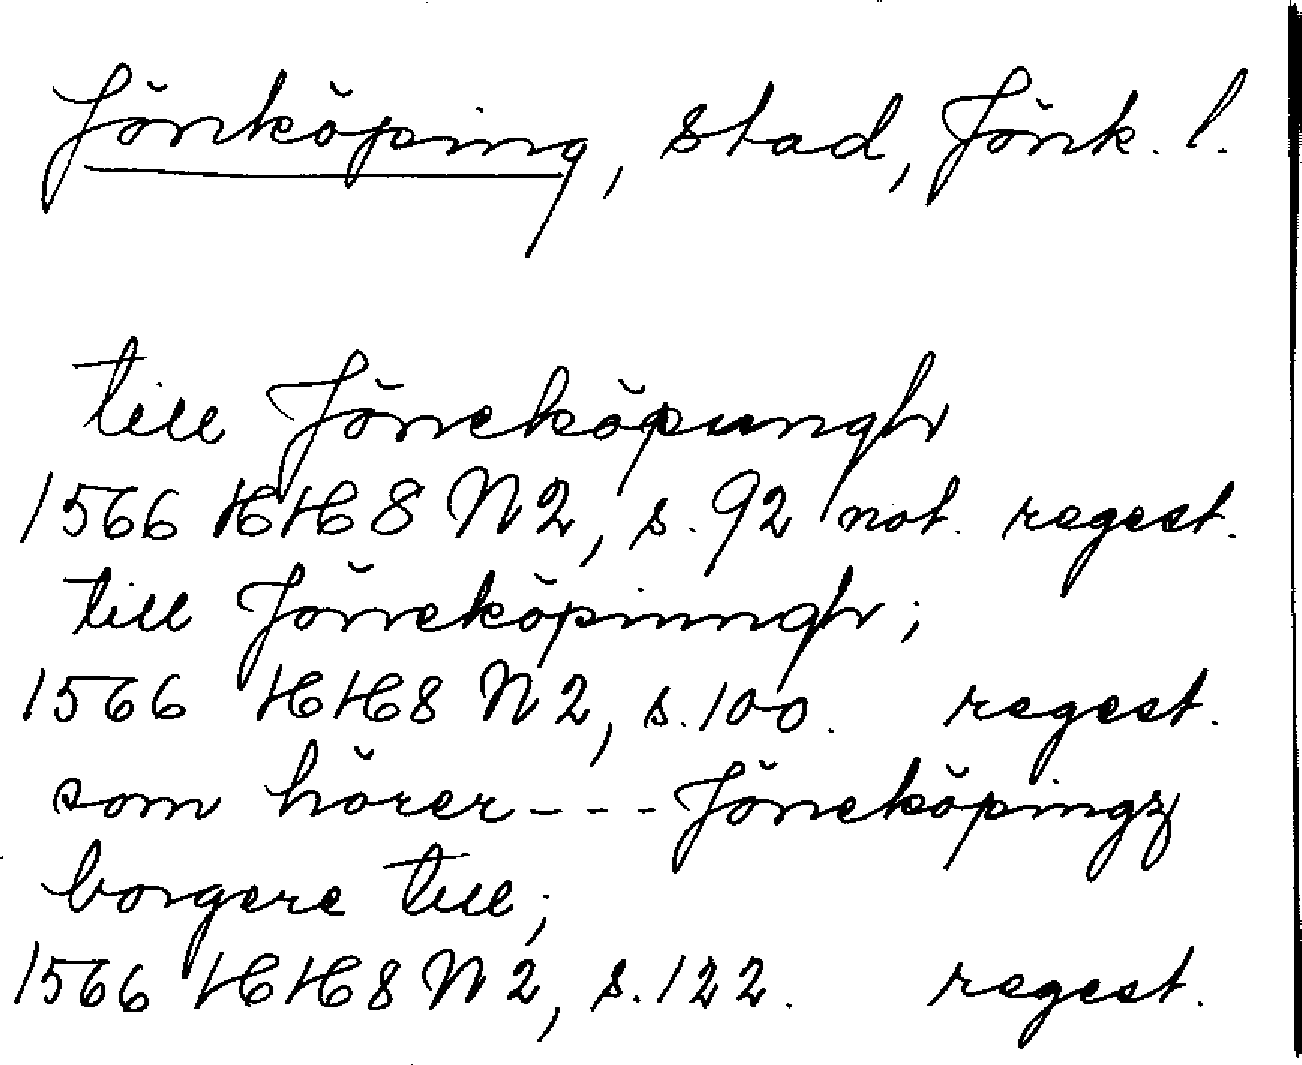 Jönköping, stad, Jönk. l.
till Jöneköpungh
1566 HH8 N2, s. 92 not. regest.
till Jöneköpinngh;
1566 HH8 N2, s. 100. regest.
som hörer - - - Jöneköpingz
borgere till;
1566 HH8 N2, s. 122. regest.